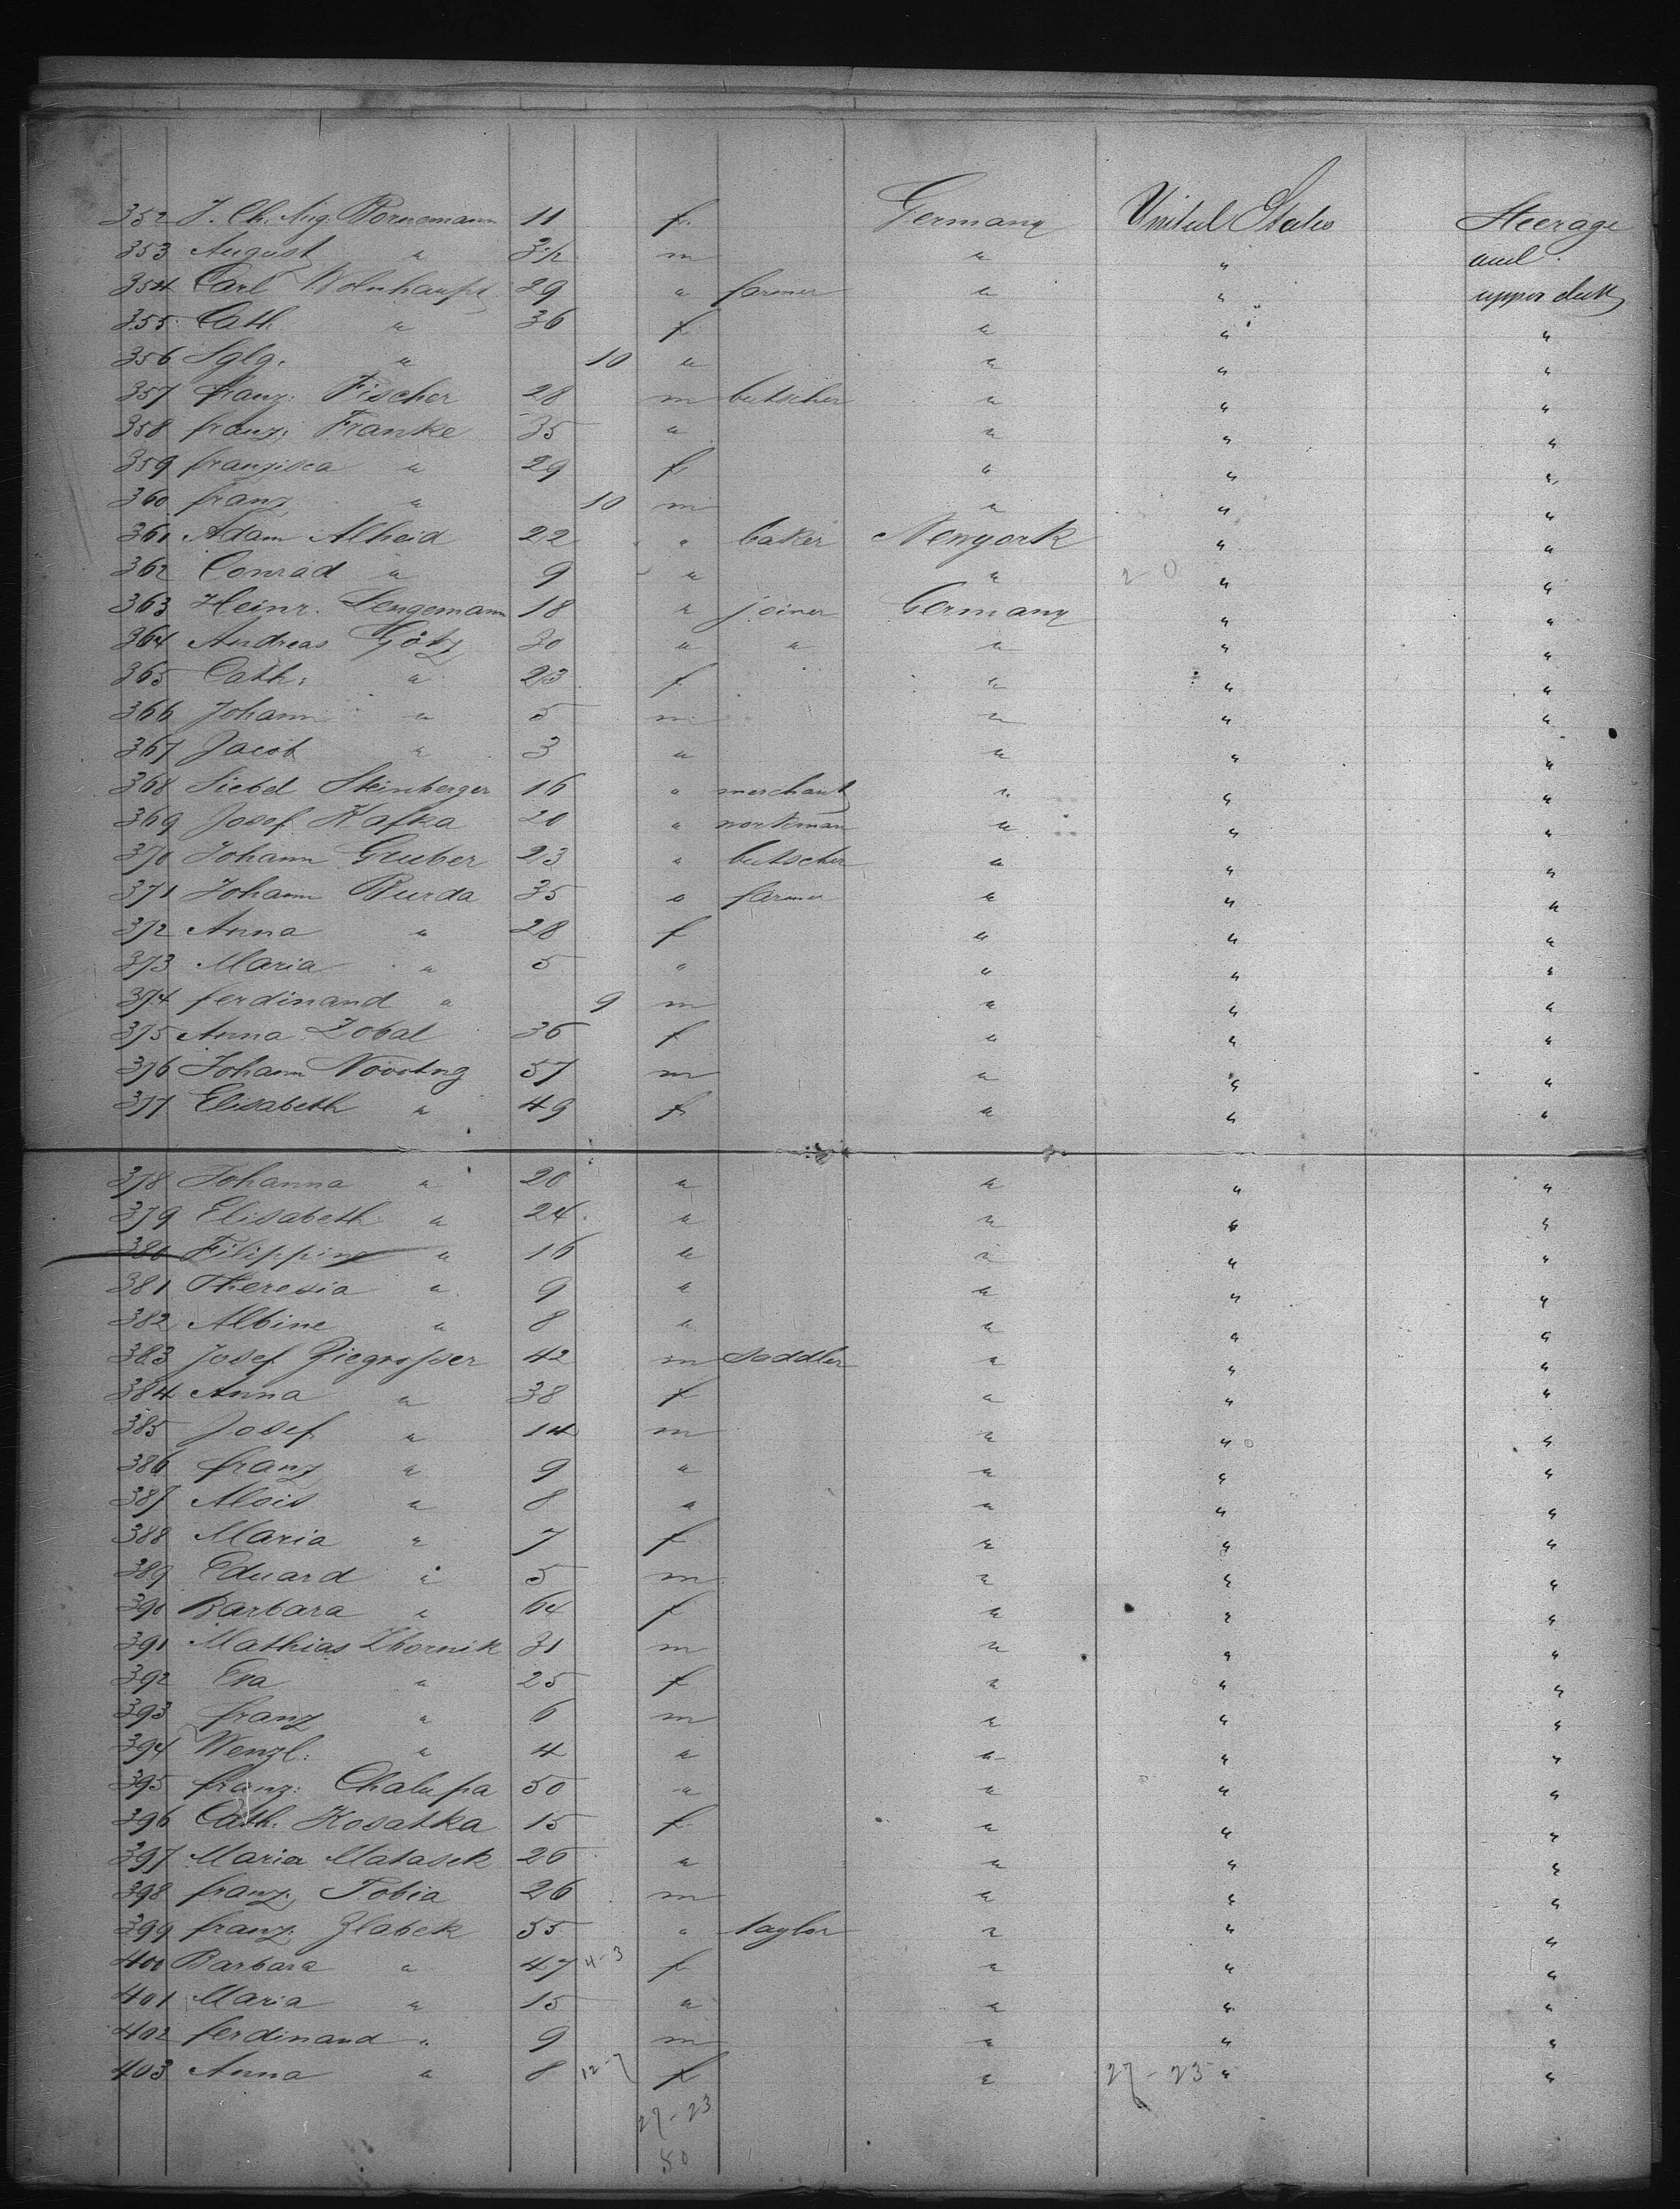 352 J. Ch. Aug. Bornemann 11 f. Germany United States Steerage
353 August " m " " and
354 Carl Wolnhaupt 29 " farmer " " upper deck
355 Cath " 36 f " " "
356 " 10 " " " "
357 franz: Fischer 28 m butscher " " "
358 franz: Franke 35 " " " "
359 franzisca " 29 f " " "
360 franz " 10 m " " "
361 Adam Alheid 22 " baker Newyork " "
362 Conrad " 9 " " 20 " "
363 Heinr. Lengemann 18 " joiner Germany " "
364 Andreas Götz 30 " " " " "
365 Cath: " 23 f " " "
366 Johann " 5 m " " "
367 Jacob " 3 " " " "
368 Siebel Steinberger 16 " merchant " " "
369 Josef Kafka 20 " workman " " "
370 Johann Gruber 23 " butscher " " "
371 Johann Burda 35 " farmer " " "
372 Anna " 28 f " " "
373 Maria " 5 " " " "
374 ferdinand " 9 m " " "
375 Anna Zobal 36 f " " "
376 Johann Novotny 57 m " " "
377 Elisabeth " 49 f " " "
378 Johanna " 20 " " " "
379 Elisabeth " 24 " " " "
380 Filippine " 16 " " " "
381 Theresia " 9 " " " "
382 Albine " 8 " " " "
383 Josef Ziegrosser 42 m saddler " " "
384 Anna " 38 f " " "
385 Josef " 14 m " " "
386 franz " 9 " " " "
387 Alois " 8 " " " "
388 Maria " 7 f " " "
389 Eduard " 5 m " " "
390 Barbara " 64 f " " "
391 Mathias Zbornik 31 m " " "
392 Eva " 25 f " " "
393 franz " 6 m " " "
394 Wenzl: " 4 " " " "
395 franz: Chalupa 50 " " " "
396 Cath. Kosatka 15 f " " "
397 Maria Matasek 26 " " " "
398 franz: Tobia 26 m " " "
399 franz: Zlabek 55 " taylor " " "
400 Barbara " 47 4-3 f " " "
401 Maria " 15 " " " "
402 ferdinand " 9 m " " "
403 Anna " 8 12-7 f " 27-23 " "
27-23
50